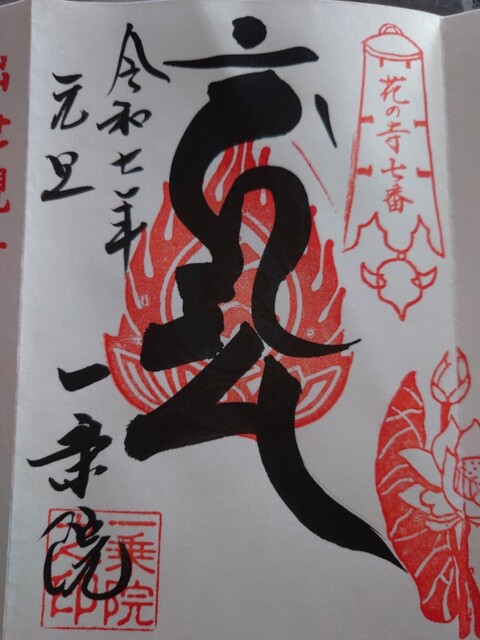 花の寺七番
令和七年
元旦
一乗院
一乗院
印
出世観